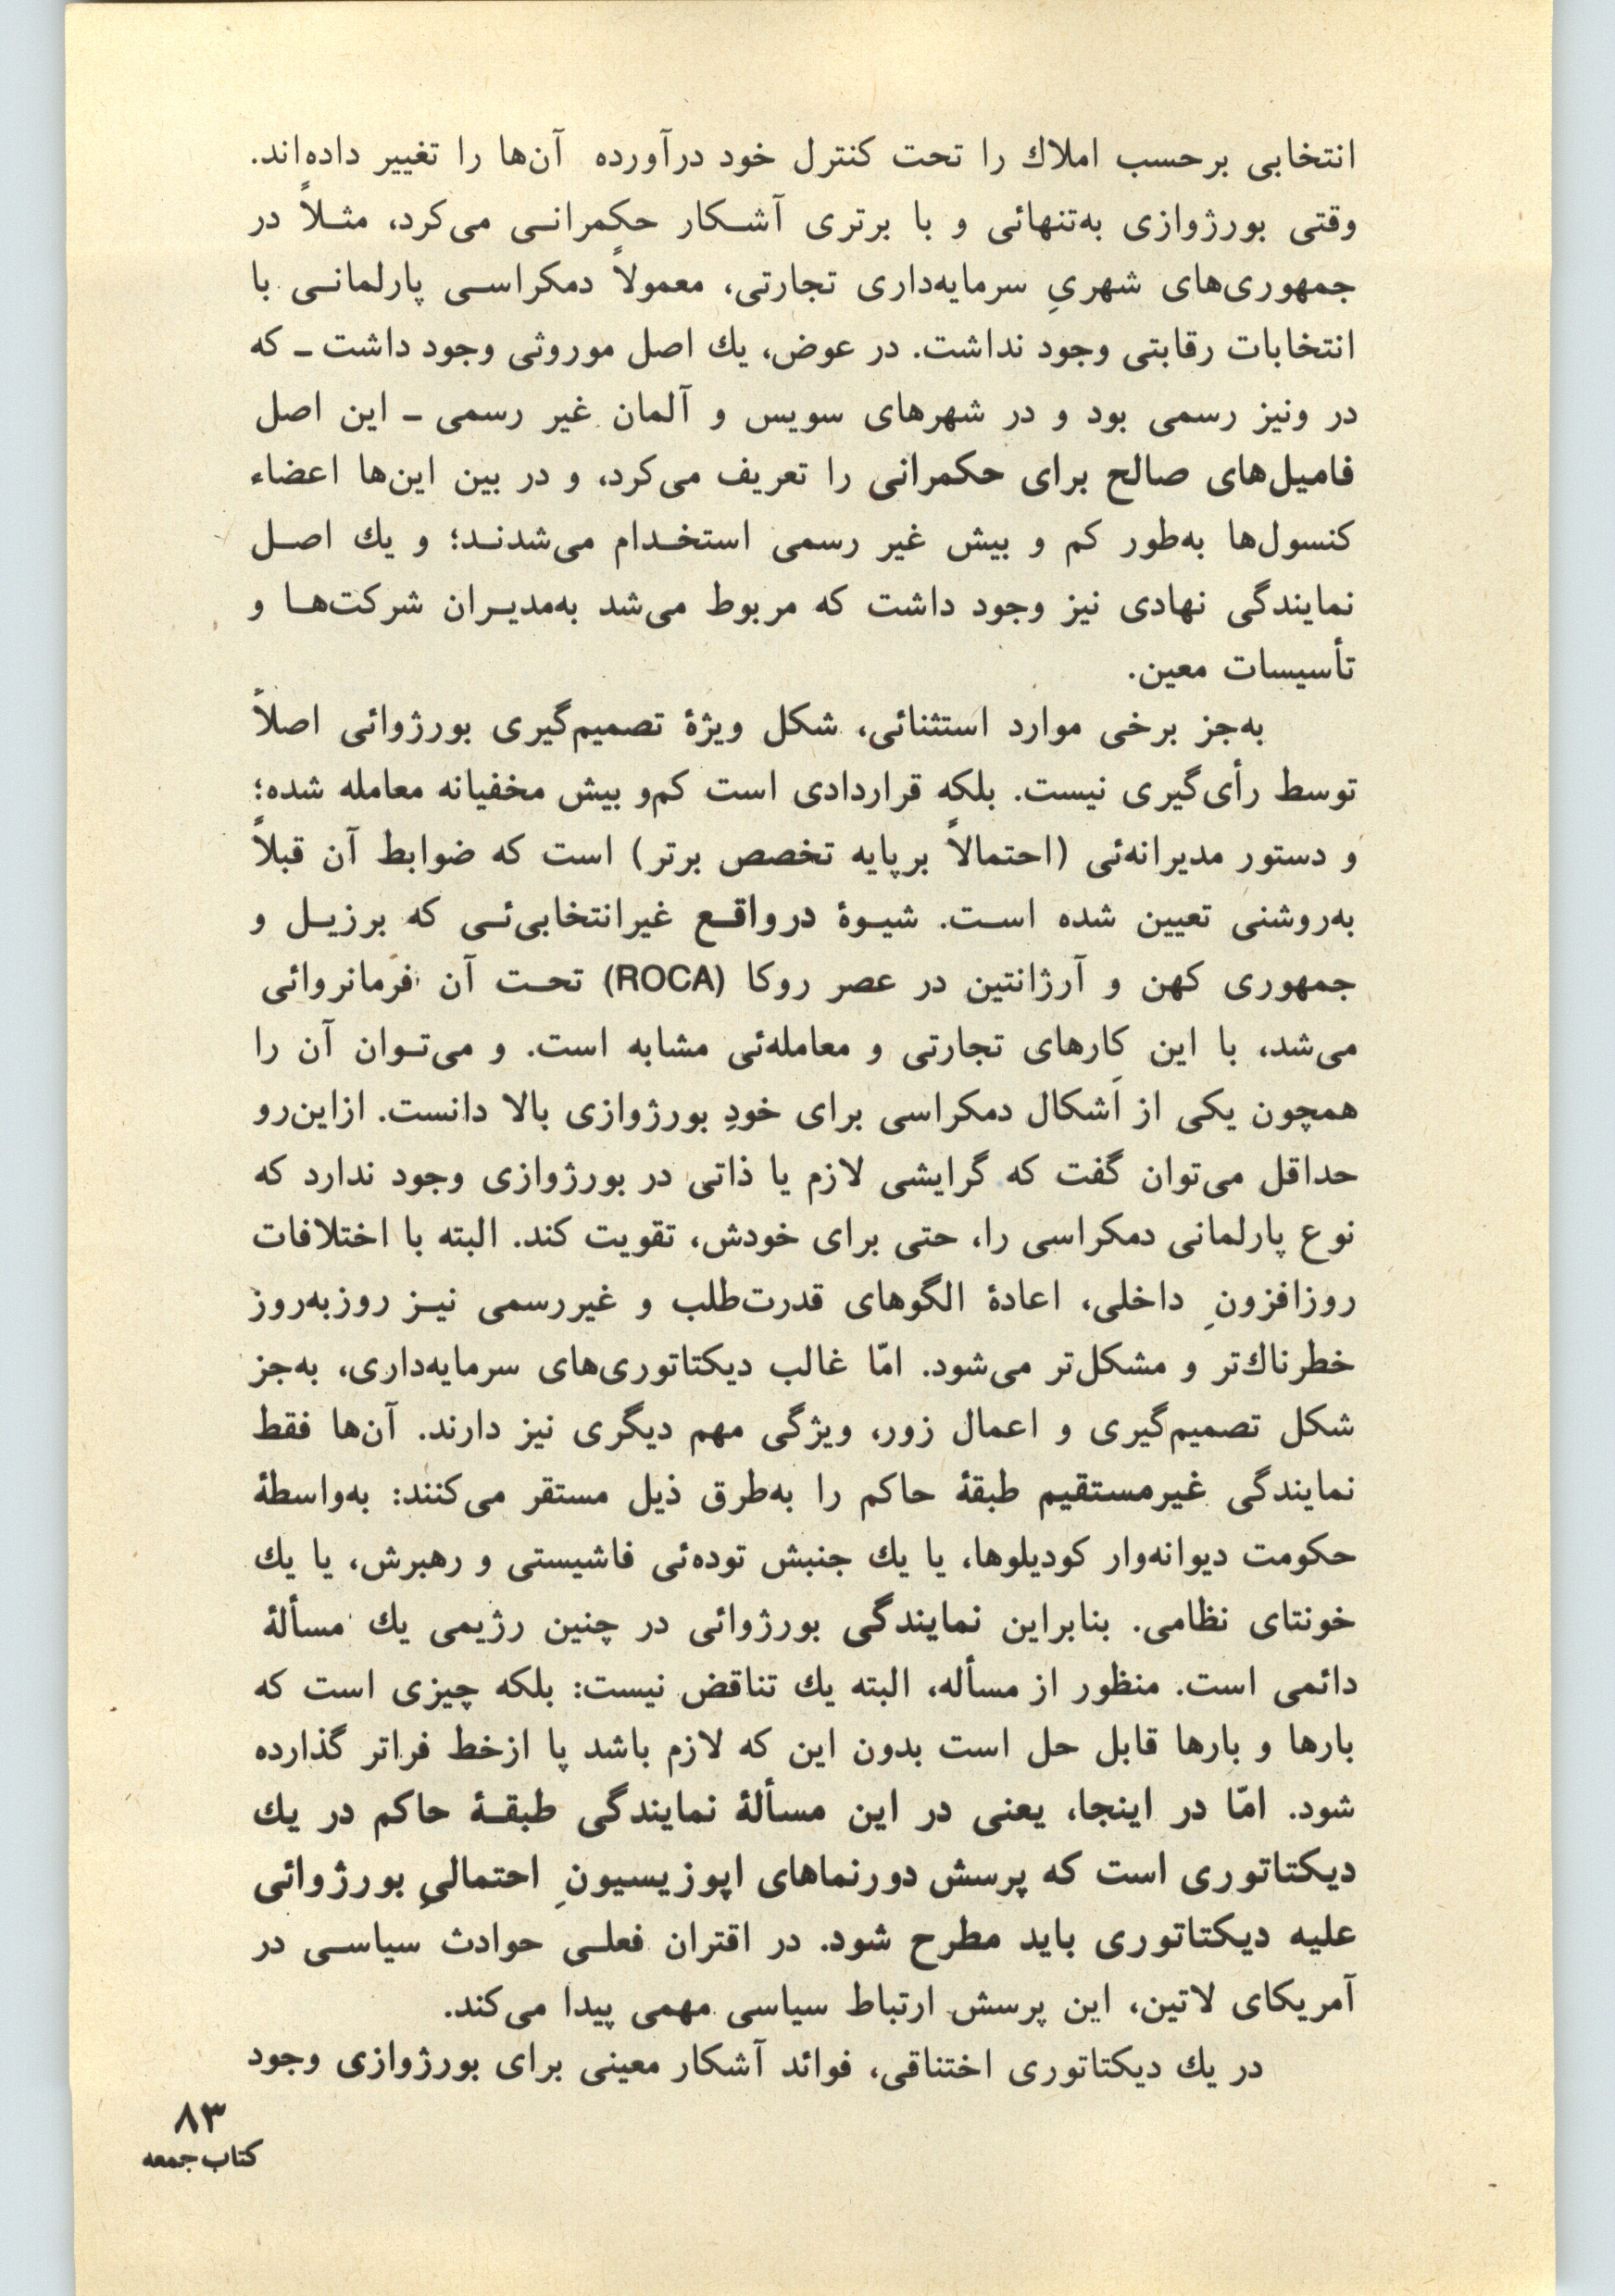 انتخابی برحسب املاك را تحت کنترل خود درآورده آن‌ها را تغییر داده‌اند.
وقتی بورژوازی به‌تنهائی و با برتری آشکار حکمرانی می‌کرد، مثلاً در
جمهوری‌های شهریِ سرمایه‌داری تجارتی، معمولاً دمکراسی پارلمانی با
انتخابات رقابتی وجود نداشت. در عوض، یك اصل موروثی وجود داشت ـ که
در ونیز رسمی بود و در شهرهای سویس و آلمان غیر رسمی ـ این اصل
فامیل‌های صالح برای حکمرانی را تعریف می‌کرد، و در بین این‌ها اعضاء
کنسول‌ها به‌طور کم و بیش غیر رسمی استخدام می‌شدند؛ و یك اصل
نمایندگی نهادی نیز وجود داشت که مربوط می‌شد به‌مدیران شرکت‌ها و
تأسیسات معین.
به‌جز برخی موارد استثنائی، شکل ویژهٔ تصمیم‌گیری بورژوائی اصلاً
توسط رأی‌گیری نیست. بلکه قراردادی است کم‌و بیش مخفیانه معامله شده؛
و دستور مدیرانه‌ئی (احتمالاً برپایه تخصص برتر) است که ضوابط آن قبلاً
به‌روشنی تعیین شده است. شیوهٔ درواقع غیرانتخابی‌ئی که برزیل و
جمهوری کهن و آرژانتین در عصر روکا (ROCA) تحت آن فرمانروائی
می‌شد، با این کارهای تجارتی و معامله‌ئی مشابه است. و می‌توان آن را
همچون یکی از اَشکال دمکراسی برای خودِ بورژوازی بالا دانست. ازاین‌رو
حداقل می‌توان گفت که گرایشی لازم یا ذاتی در بورژوازی وجود ندارد که
نوع پارلمانی دمکراسی را، حتی برای خودش، تقویت کند. البته با اختلافات
روزافزونِ داخلی، اعادهٔ الگوهای قدرت‌طلب و غیررسمی نیز روزبه‌روز
خطرناك‌تر و مشکل‌تر می‌شود. امّا غالب دیکتاتوری‌های سرمایه‌داری، به‌جز
شکل تصمیم‌گیری و اعمال زور، ویژگی مهم دیگری نیز دارند. آن‌ها فقط
نمایندگی غیرمستقیم طبقهٔ حاکم را به‌طرق ذیل مستقر می‌کنند: به‌واسطهٔ
حکومت دیوانه‌وار کودیلوها، یا یك جنبش توده‌ئی فاشیستی و رهبرش، یا یك
خونتای نظامی. بنابراین نمایندگی بورژوائی در چنین رژیمی یك مسألهٔ
دائمی است. منظور از مسأله، البته یك تناقض نیست: بلکه چیزی است که
بارها و بارها قابل حل است بدون این که لازم باشد پا ازخط فراتر گذارده
شود. امّا در اینجا، یعنی در این مسألهٔ نمایندگی طبقهٔ حاکم در یك
دیکتاتوری است که پرسش دورنماهای اپوزیسیونِ احتمالیِ بورژوائی
علیه دیکتاتوری باید مطرح شود. در اقتران فعلی حوادث سیاسی در
آمریکای لاتین، این پرسش ارتباط سیاسی مهمی پیدا می‌کند.
در یك دیکتاتوری اختناقی، فوائد آشکار معینی برای بورژوازی وجود
۸۳
کتاب جمعه